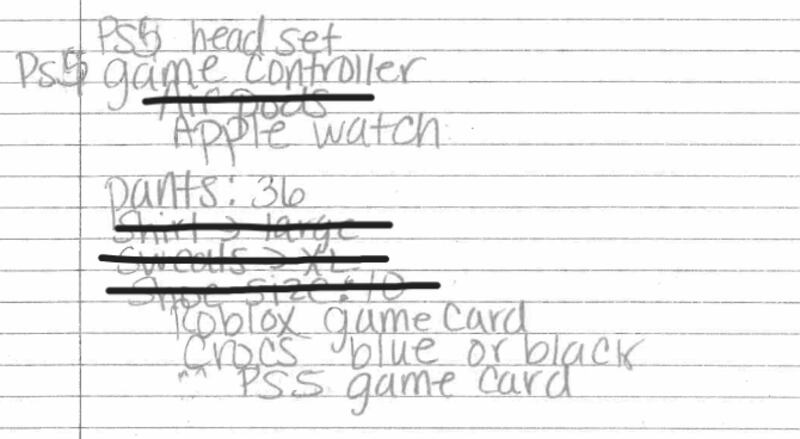 PS5 head set
PS5 game controller
Air pods
Apple watch
pants: 36
Shirt > large
Sweats > XL
Shoe size: 10
Roblox game card
Crocs blue or black
^^ PS5 game card